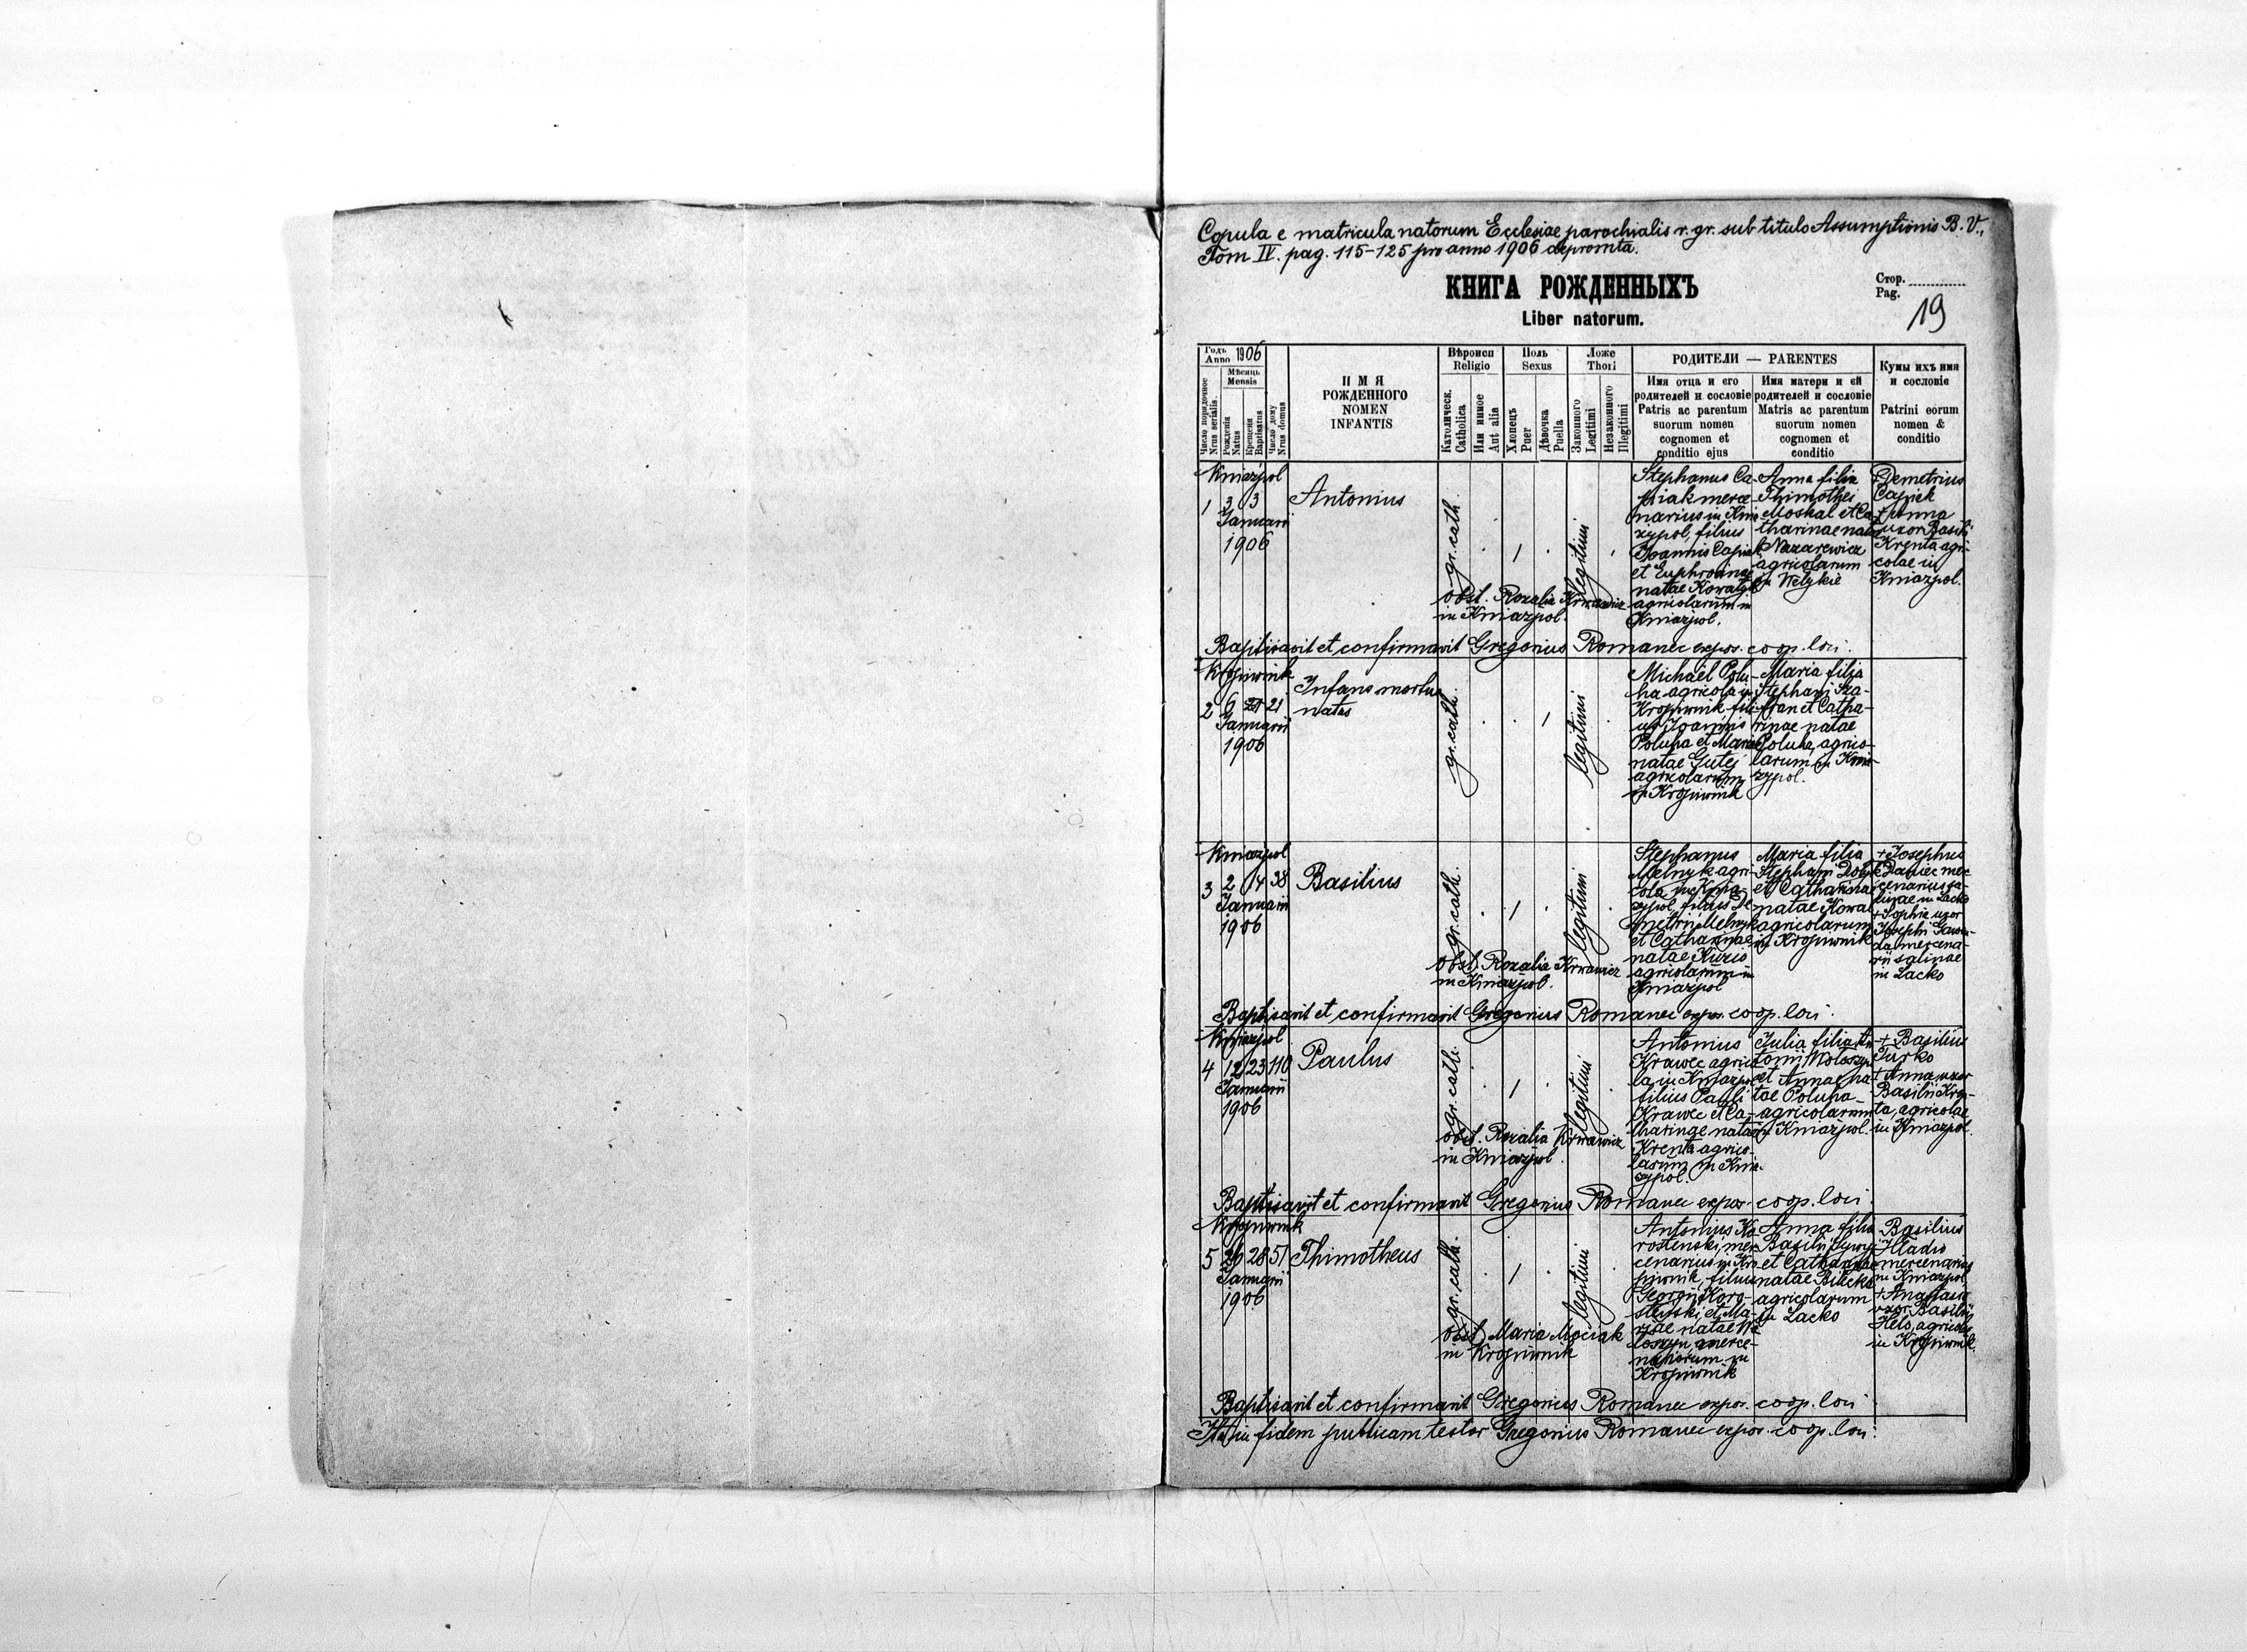 Copula e matricula natorum Ecclesiae parochialis r. gr. sub titulo Assumptionis B. V.,
Tom IV. pag. 115-125 pro anno 1906 depromta.
КНИГА РОЖДЕННЫХЪ
Liber natorum.
Стор.
Pag.
19
Годъ
Anno 1906
Мѣсяць
Mensis
Число порядочное
Nrus serialis
Рожденія
Natus
Крещенія
Baptisatus
Число дому
Nrus domus
ИМЯ
РОЖДЕННОГО
NOMEN
INFANTIS
Вѣроисп
Religio
Католическ.
Catholica
Или инное
Aut alia
Полъ
Sexus
Хлопецъ
Puer
Дѣвочка
Puella
Ложе
Thori
Законного
Legitimi
Незаконного
Illegitimi
РОДИТЕЛИ — PARENTES
Имя отца и его
родителей и сословіе
Patris ac parentum
suorum nomen
cognomen et
conditio ejus
Имя матери и ей
родителей и сословіе
Matris ac parentum
suorum nomen
cognomen et
conditio
Кумы ихъ имя
и сословіе
Patrini eorum
nomen &
conditio
Kniazpol
1 3 3
Januarii
1906
Antonius
gr. cath.
legitimi
obst. Rozalia Krwawicz
in Kniazpol.
Stephanus Ca-
piak merce
narius in Knia
zypol, filius
Joannis Capiak
et Euphrosinae
natae Kowalyk
agricolarum in
Kniazpol.
Anna filia
Thimothei
Moskal et Ca
tharinae natae
Nazarewicz
agricolarum
in Welykie
+ Demetrius
Capiek
+ Anna
uxor Basilii
Krenta agri-
colae in
Kniazpol.
Baptisavit et confirmavit Gregorius Romanec expos. coop. loci.
Kropiwnik
2 6 21 21
Januarii
1906
Infans mortuo
natus
gr. cath.
legitimi
Michael Polu-
ha agricola in
Kropiwnik, fili
us Joannis
Poluha et Mariae
natae Gutej
agricolarum
in Kropiwnik
Maria filia
Stephani Sza-
fran et Catha-
rinae natae
Poluha, agrico-
larum in Knia-
zypol.
Kniazpol
3 2 14 38
Januarii
1906
Basilius
gr. cath.
legitimi
obst. Rozalia Krwawicz
in Kniazpol.
Stephanus
Melnyk agri-
cola in Knia-
zypol, filius De
metrii Melnyk
et Catharinae
natae Kuzio
agricolarum in
Kniazpol
Maria filia
et Catharinae
natae Kowal
agricolarum
in Kropiwnik
+ Josephus
Daniec mer
cenarius sa-
linae in Lacko
+ Sophia uxor
da mercena-
rii salinae
in Lacko
Baptisavit et confirmavit Gregorius Romanec expos. coop. loci.
Kniazpol
4 12 23 110
Januarii
1906
Paulus
gr. cath.
legitimi
obst. Rozalia Krwawicz
in Kniazpol.
Antonius
Krawec agrico
la in Kniazpol
filius Pauli
Krawec et Ca-
tharinae natae
Krenta agrico-
larum in Knia-
zypol.
Julia filia An
tonii Woloszyn
et Annae na-
tae Poluha
agricolarum
in Kniazpol.
+ Basilius
Turko
+ Anna uxor
Basilii Kren-
ta, agricolae
in Kniazpol.
Baptisavit et confirmavit Gregorius Romanec expos. coop. loci.
Kropiwnik
5 26 28 51
Januarii
1906
Thimotheus
gr. cath.
legitimi
obst. Maria Mociak
in Kropiwnik
Antonius Ko
rostenski, mer
cenarius in Kro
piwnik, filius
Georgii Koro-
stenski et Ma-
riae natae Wo
loszyn merce-
nariorum in
Kropiwnik
Anna filia
et Catharinae
natae Bilecka
agricolarum
in Lacko
Basilius
Hladio
mercenarius
in Kniazpol
+ Anastasia
uxor Basilii
Helo, agricolae
in Kropiwnik.
Baptisavit et confirmavit Gregorius Romanec expos. coop. loci.
In fidem publicam testor Gregorius Romanec expos. coop. loci.